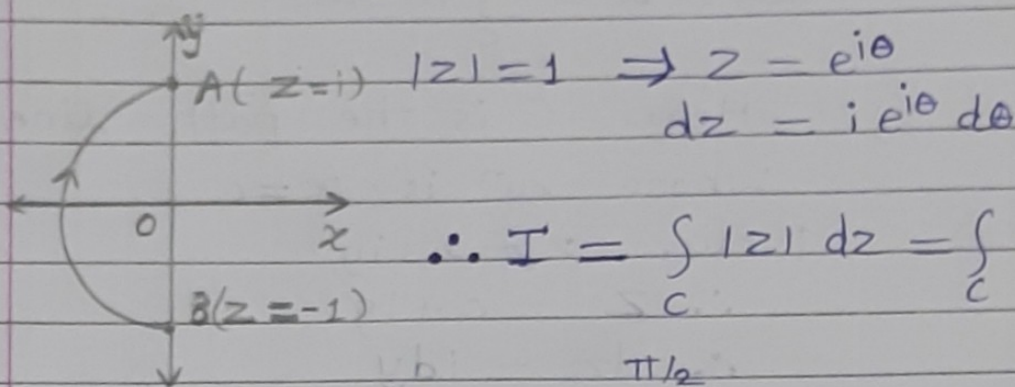 y
A( z=i) |z| = 1 ⇒ z = e^{iθ}
dz = i e^{iθ} dθ
O x
∴ I = ∫_C |z| dz = ∫_C
B(z = -1)
π/2